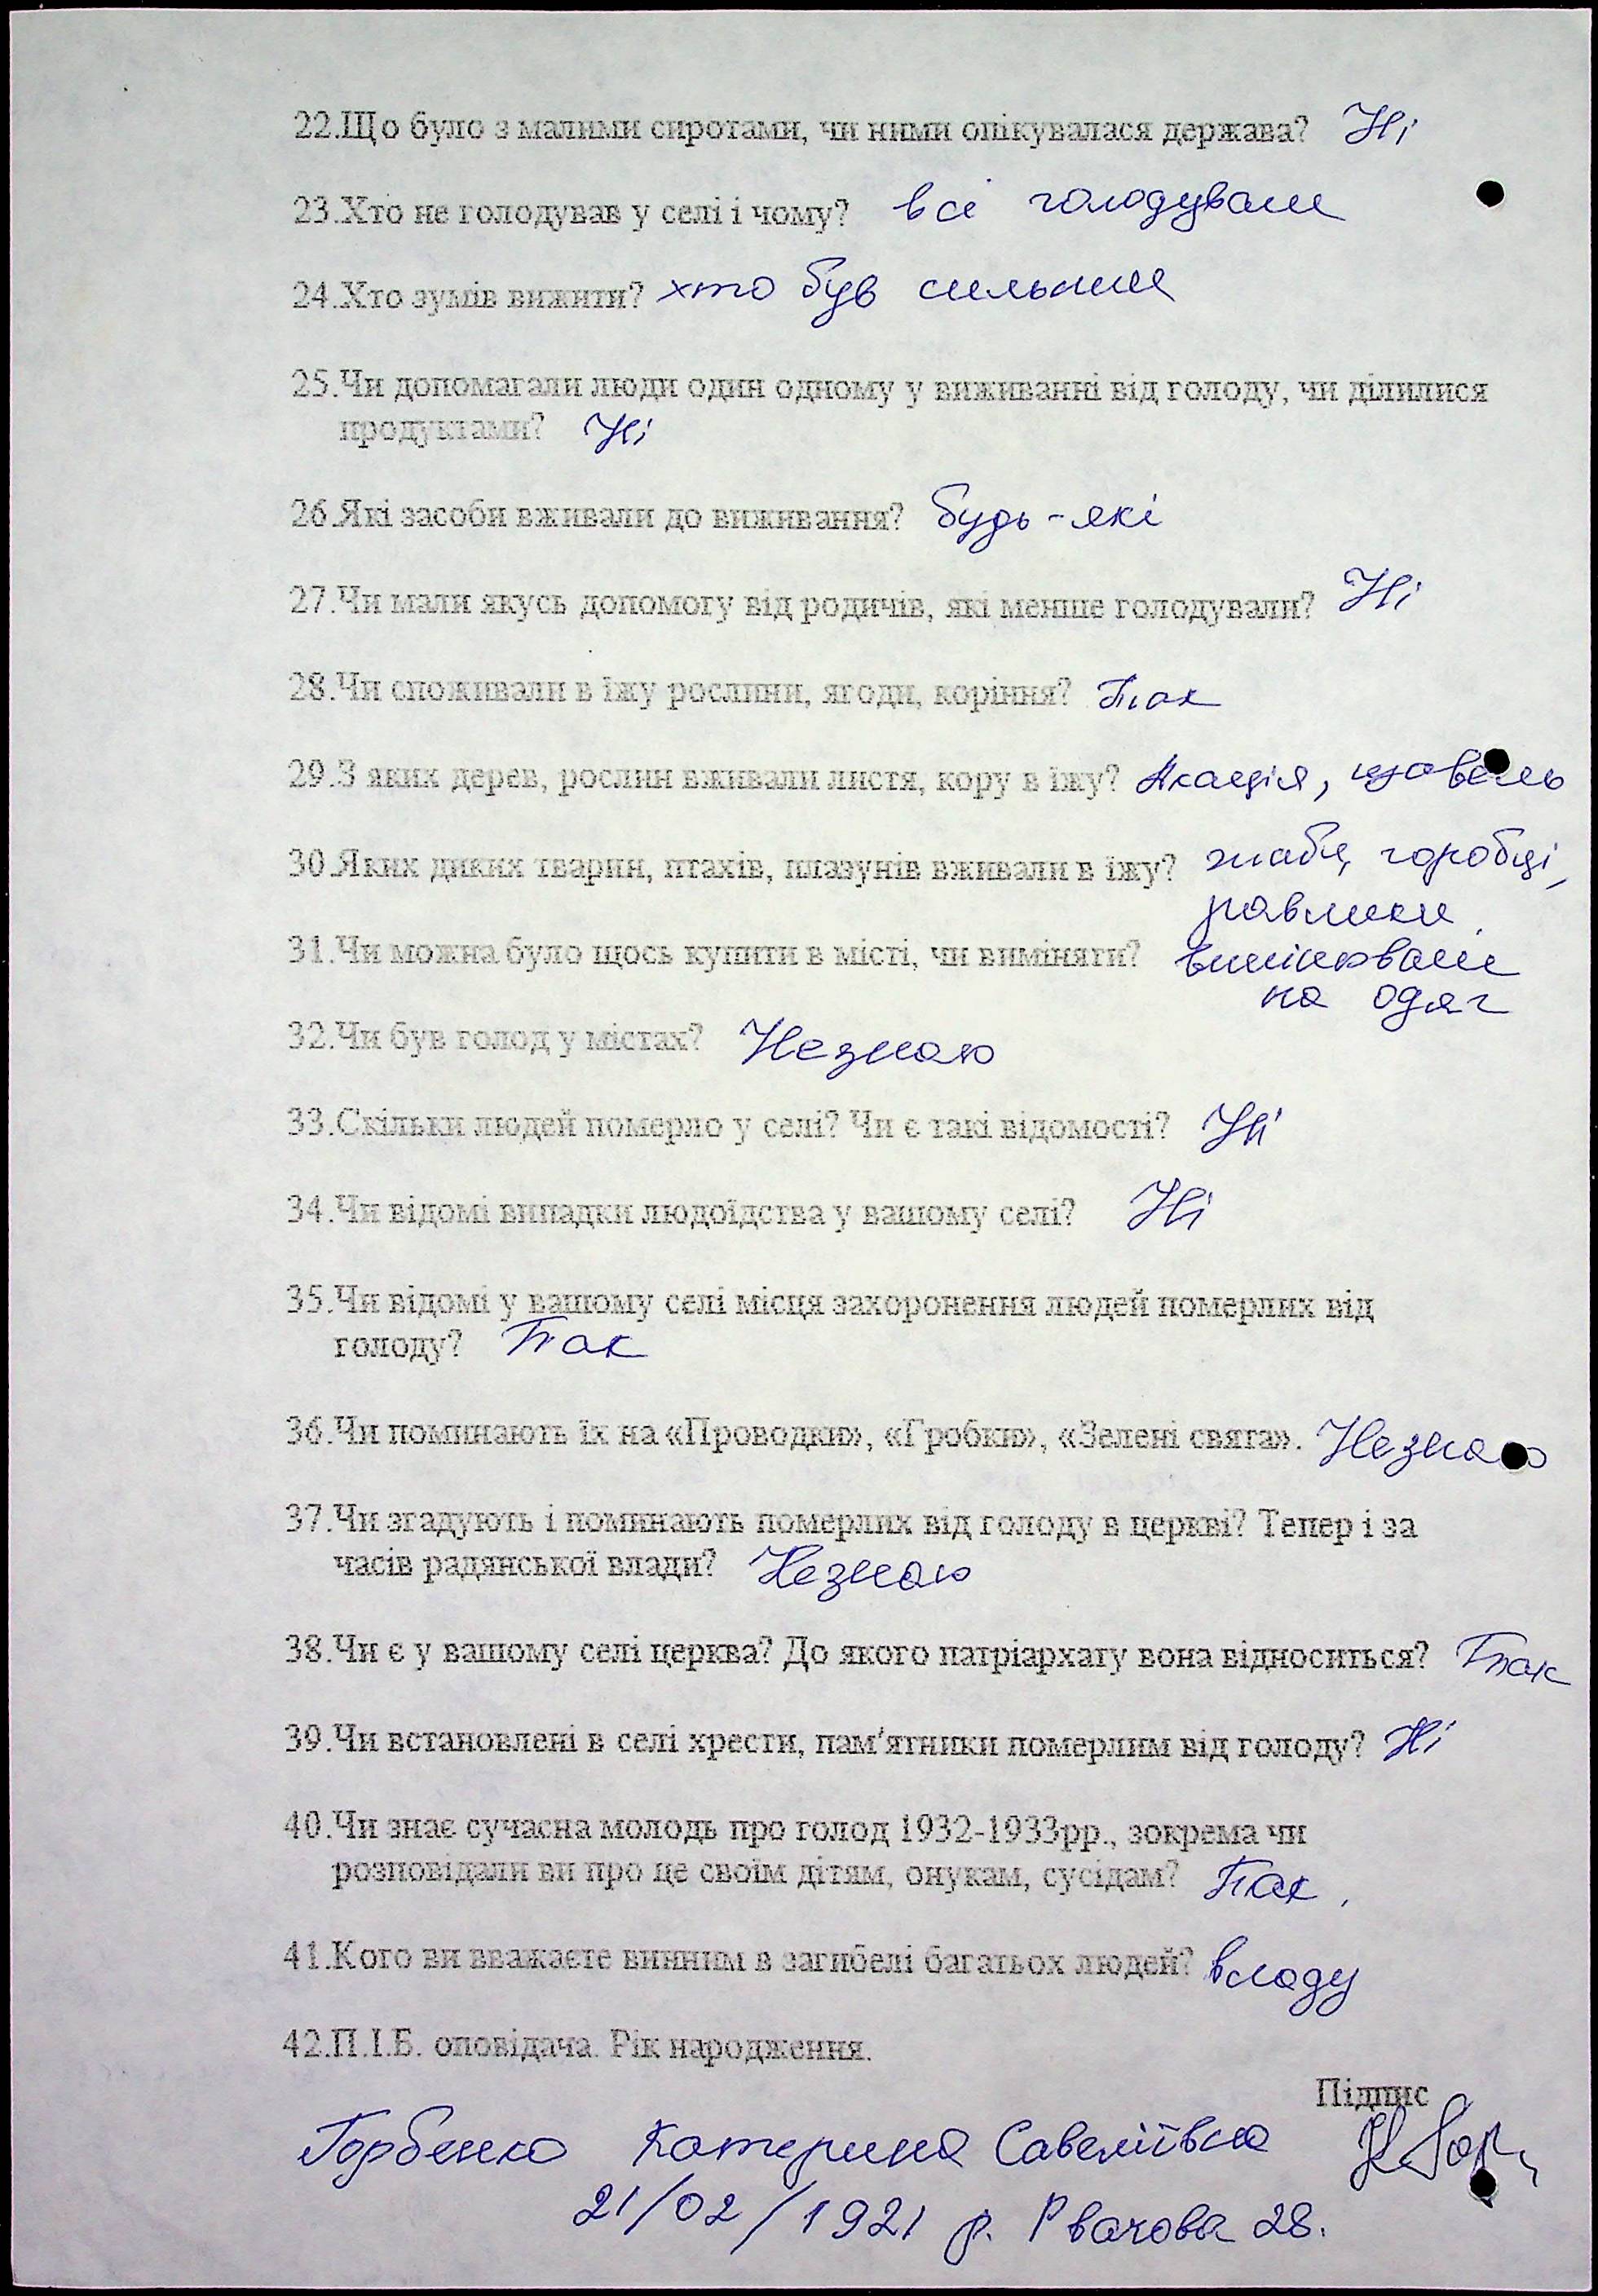 22.Що було з малими сиротами, чи ними опікувалася держава? Ні
23.Хто не голодував у селі і чому? всі голодували
24.Хто зумів вижити? хто був сильний
25.Чи допомагали люди один одному у виживанні від голоду, чи ділилися
продуктами? Ні
26.Які засоби вживали до виживання? будь-які
27.Чи мали якусь допомогу від родичів, які менше голодували? Ні
28.Чи споживали в їжу рослини, ягоди, коріння? Так
29.З яких дерев, рослин вживали листя, кору в їжу? Акація, щавель
30.Яких диких тварин, птахів, плазунів вживали в їжу? жаби, горобці,
равлики
31.Чи можна було щось купити в місті, чи виміняти? вимінювали
на одяг
32.Чи був голод у містах? Незнаю
33.Скільки людей померло у селі? Чи є такі відомості? Ні
34.Чи відомі випадки людоїдства у вашому селі? Ні
35.Чи відомі у вашому селі місця захоронення людей померлих від
голоду? Так
36.Чи поминають їх на «Проводки», «Гробки», «Зелені свята». Незнаю
37.Чи згадують і поминають померлих від голоду в церкві? Тепер і за
часів радянської влади? Незнаю
38.Чи є у вашому селі церква? До якого патріархату вона відноситься? Так
39.Чи встановлені в селі хрести, пам'ятники померлим від голоду? Ні
40.Чи знає сучасна молодь про голод 1932-1933рр., зокрема чи
розповідали ви про це своїм дітям, онукам, сусідам? Так.
41.Кого ви вважаєте винним в загибелі багатьох людей? владу
42.П.І.Б. оповідача. Рік народження.
Підпис
Горбенко Катерина Савеліївна
21/02/1921 р. Рвачова 28.